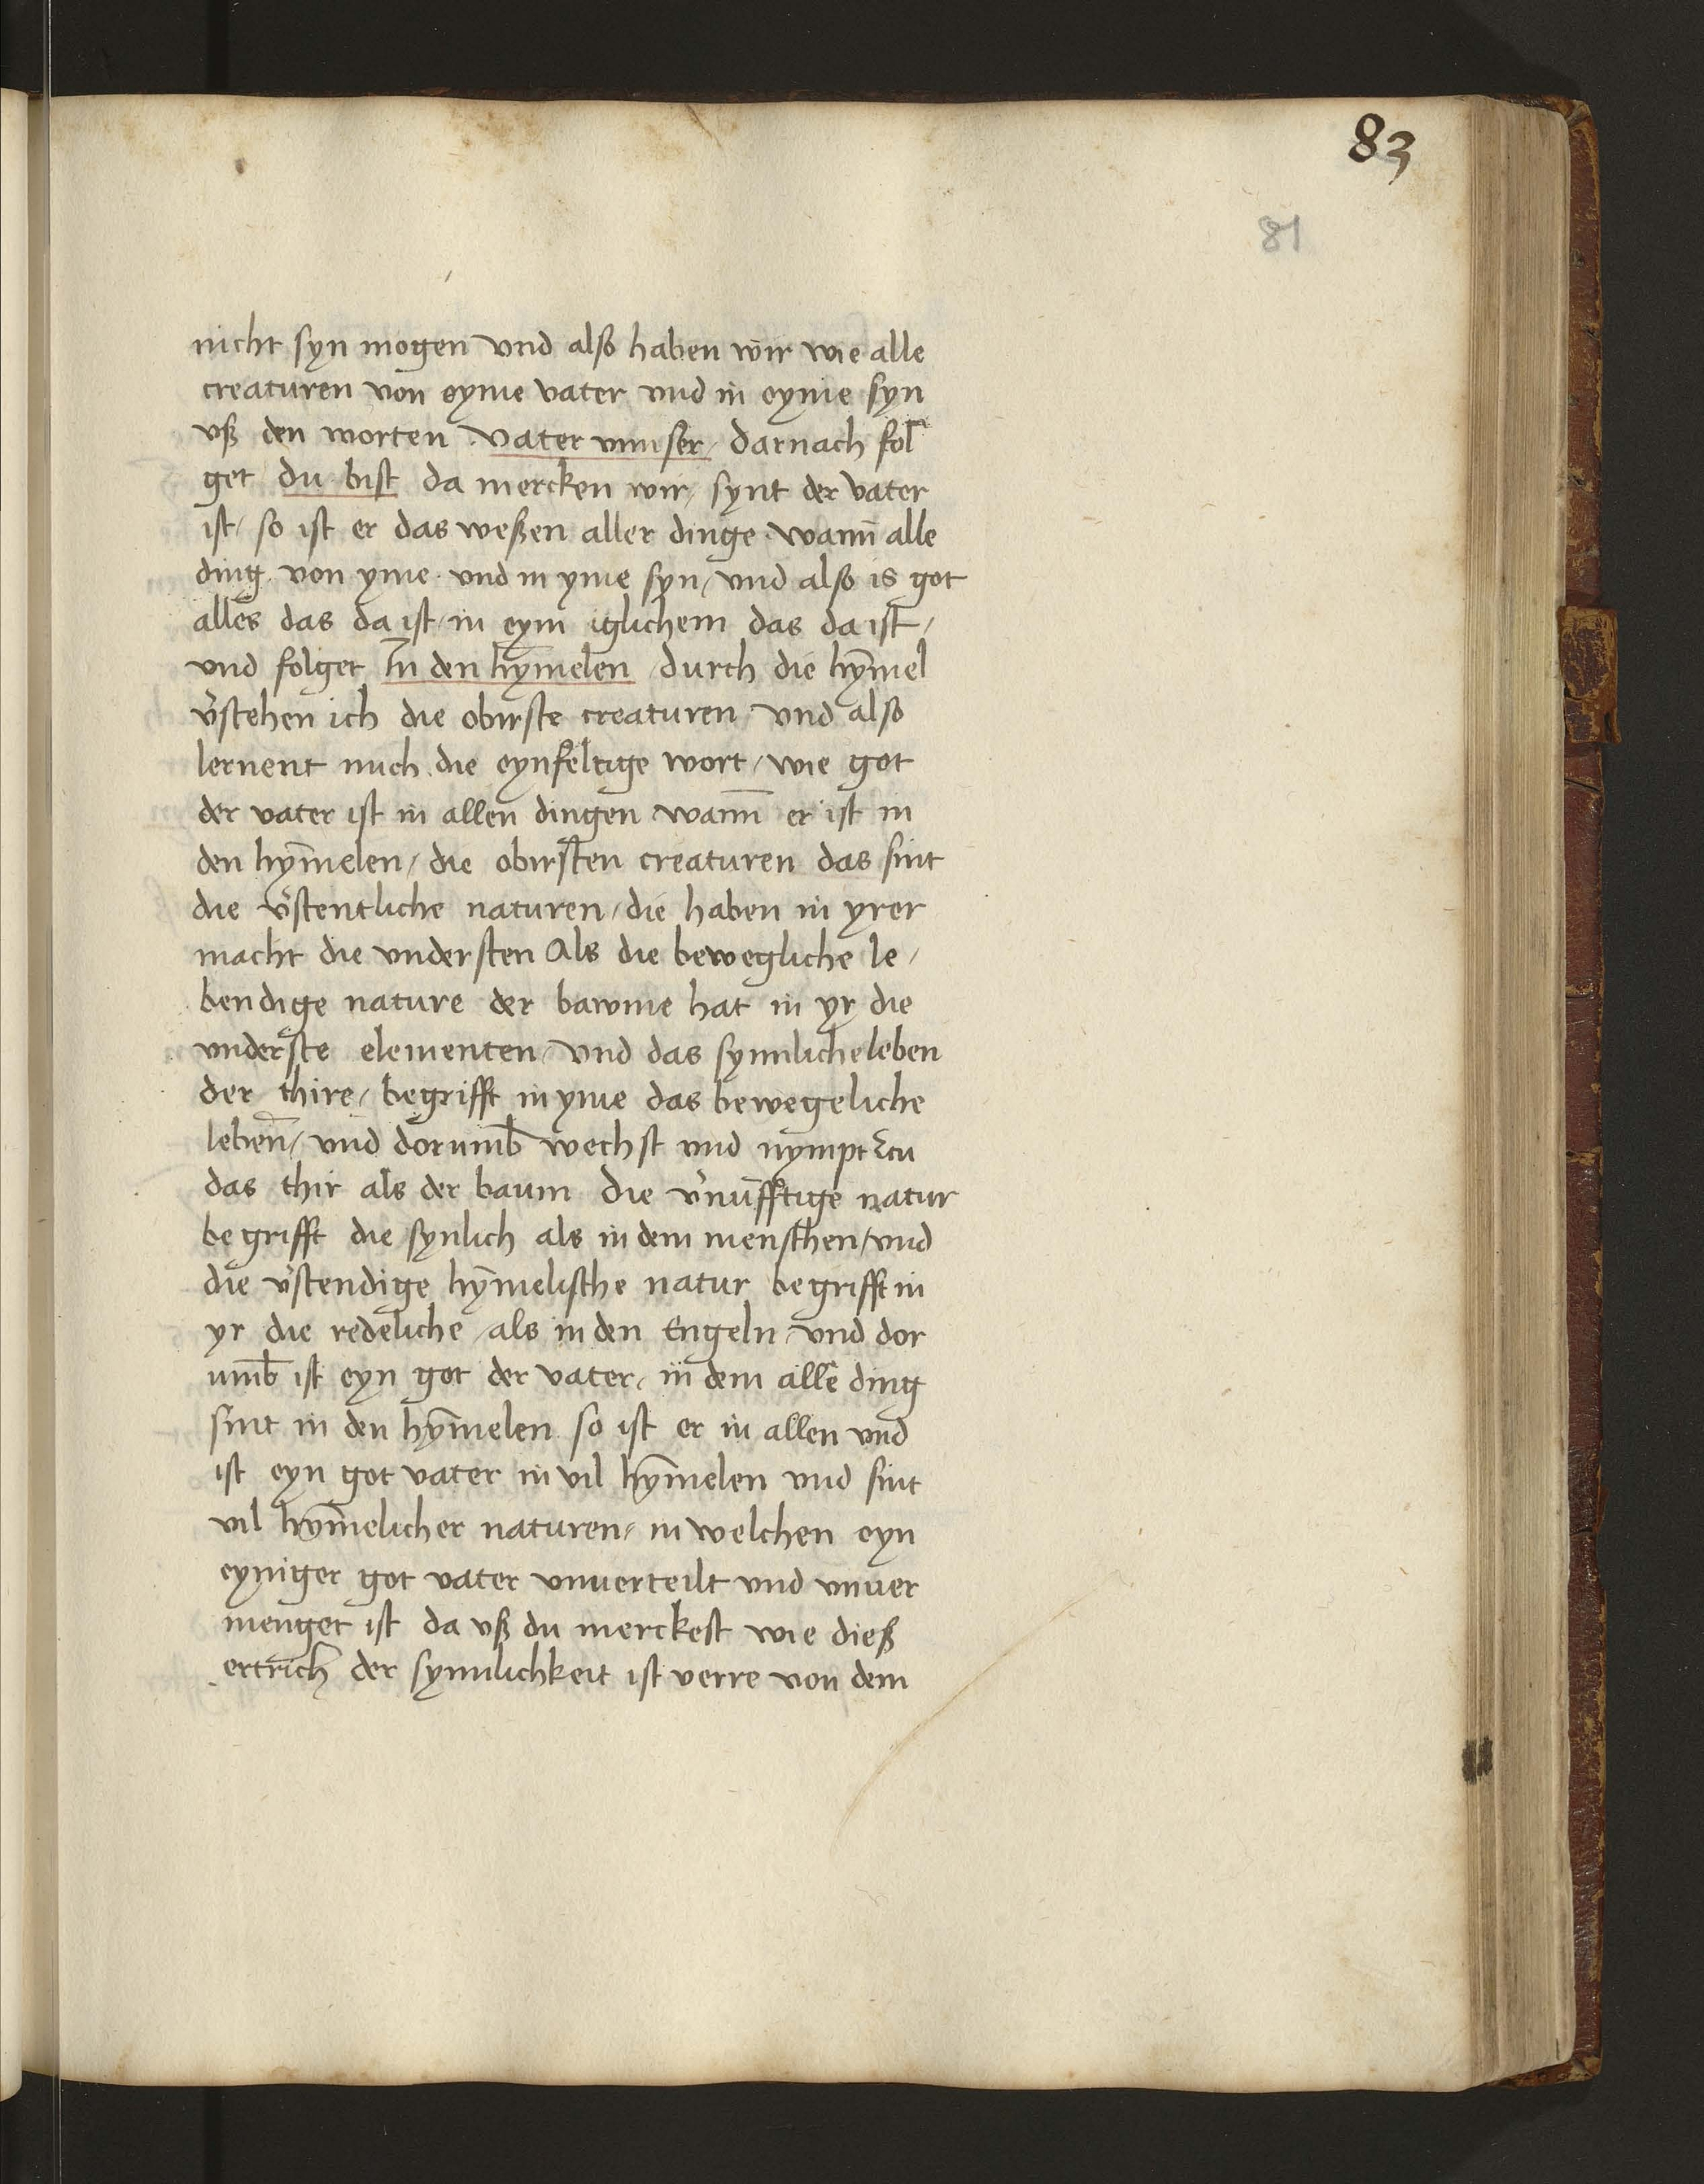 83
81
nicht syn mogen und also haben wir wie alle
creaturen von eyme vater und in eyme syn
uß den worten vater unnser / darnach fol
get du bist da mercken wir / synt der vater
ist / so ist er das weßen aller dinge wann̄ alle
ding von yme und in yme syn / und also is got
alles das da ist / in eym iglichem das da ist /
und folget In den hym̄elen / durch die hym̄el
v̓stehen ich die obirste creaturen und also
lernent mich die eynfeltige wort / wie got
der vater ist in allen dingen wann̄ er ist in
den hym̄elen / die obirsten creaturen das sint
die v̓stentliche naturen / die haben in yrer
macht die understen als die bewegliche le /
bendige nature der bawme hat in yr die
underste elementen / und das synnliche leben
der thire / begrifft in yme das bewegeliche
leben̄ / und dorumb̄ wechst und nympt zcu
das thir als der baum die v̓nūfftige natur
begrifft die synlich als in dem menschen / und
die v̓stendige hym̄elische natur begrifft in
yr die redeliche / als in den Engeln / und dor
umb̄ ist eyn got der vater / in dem alle ding
sint in den hym̄elen so ist er in allen und
ist eyn got vater in vil hym̄elen und sint
vil hym̄elicher naturen / in welchen eyn
eyniger got vater unuerteilt und unuer
menget ist da uß du merckest wie dieß
ertrich der synnlichkeit ist verre von dem